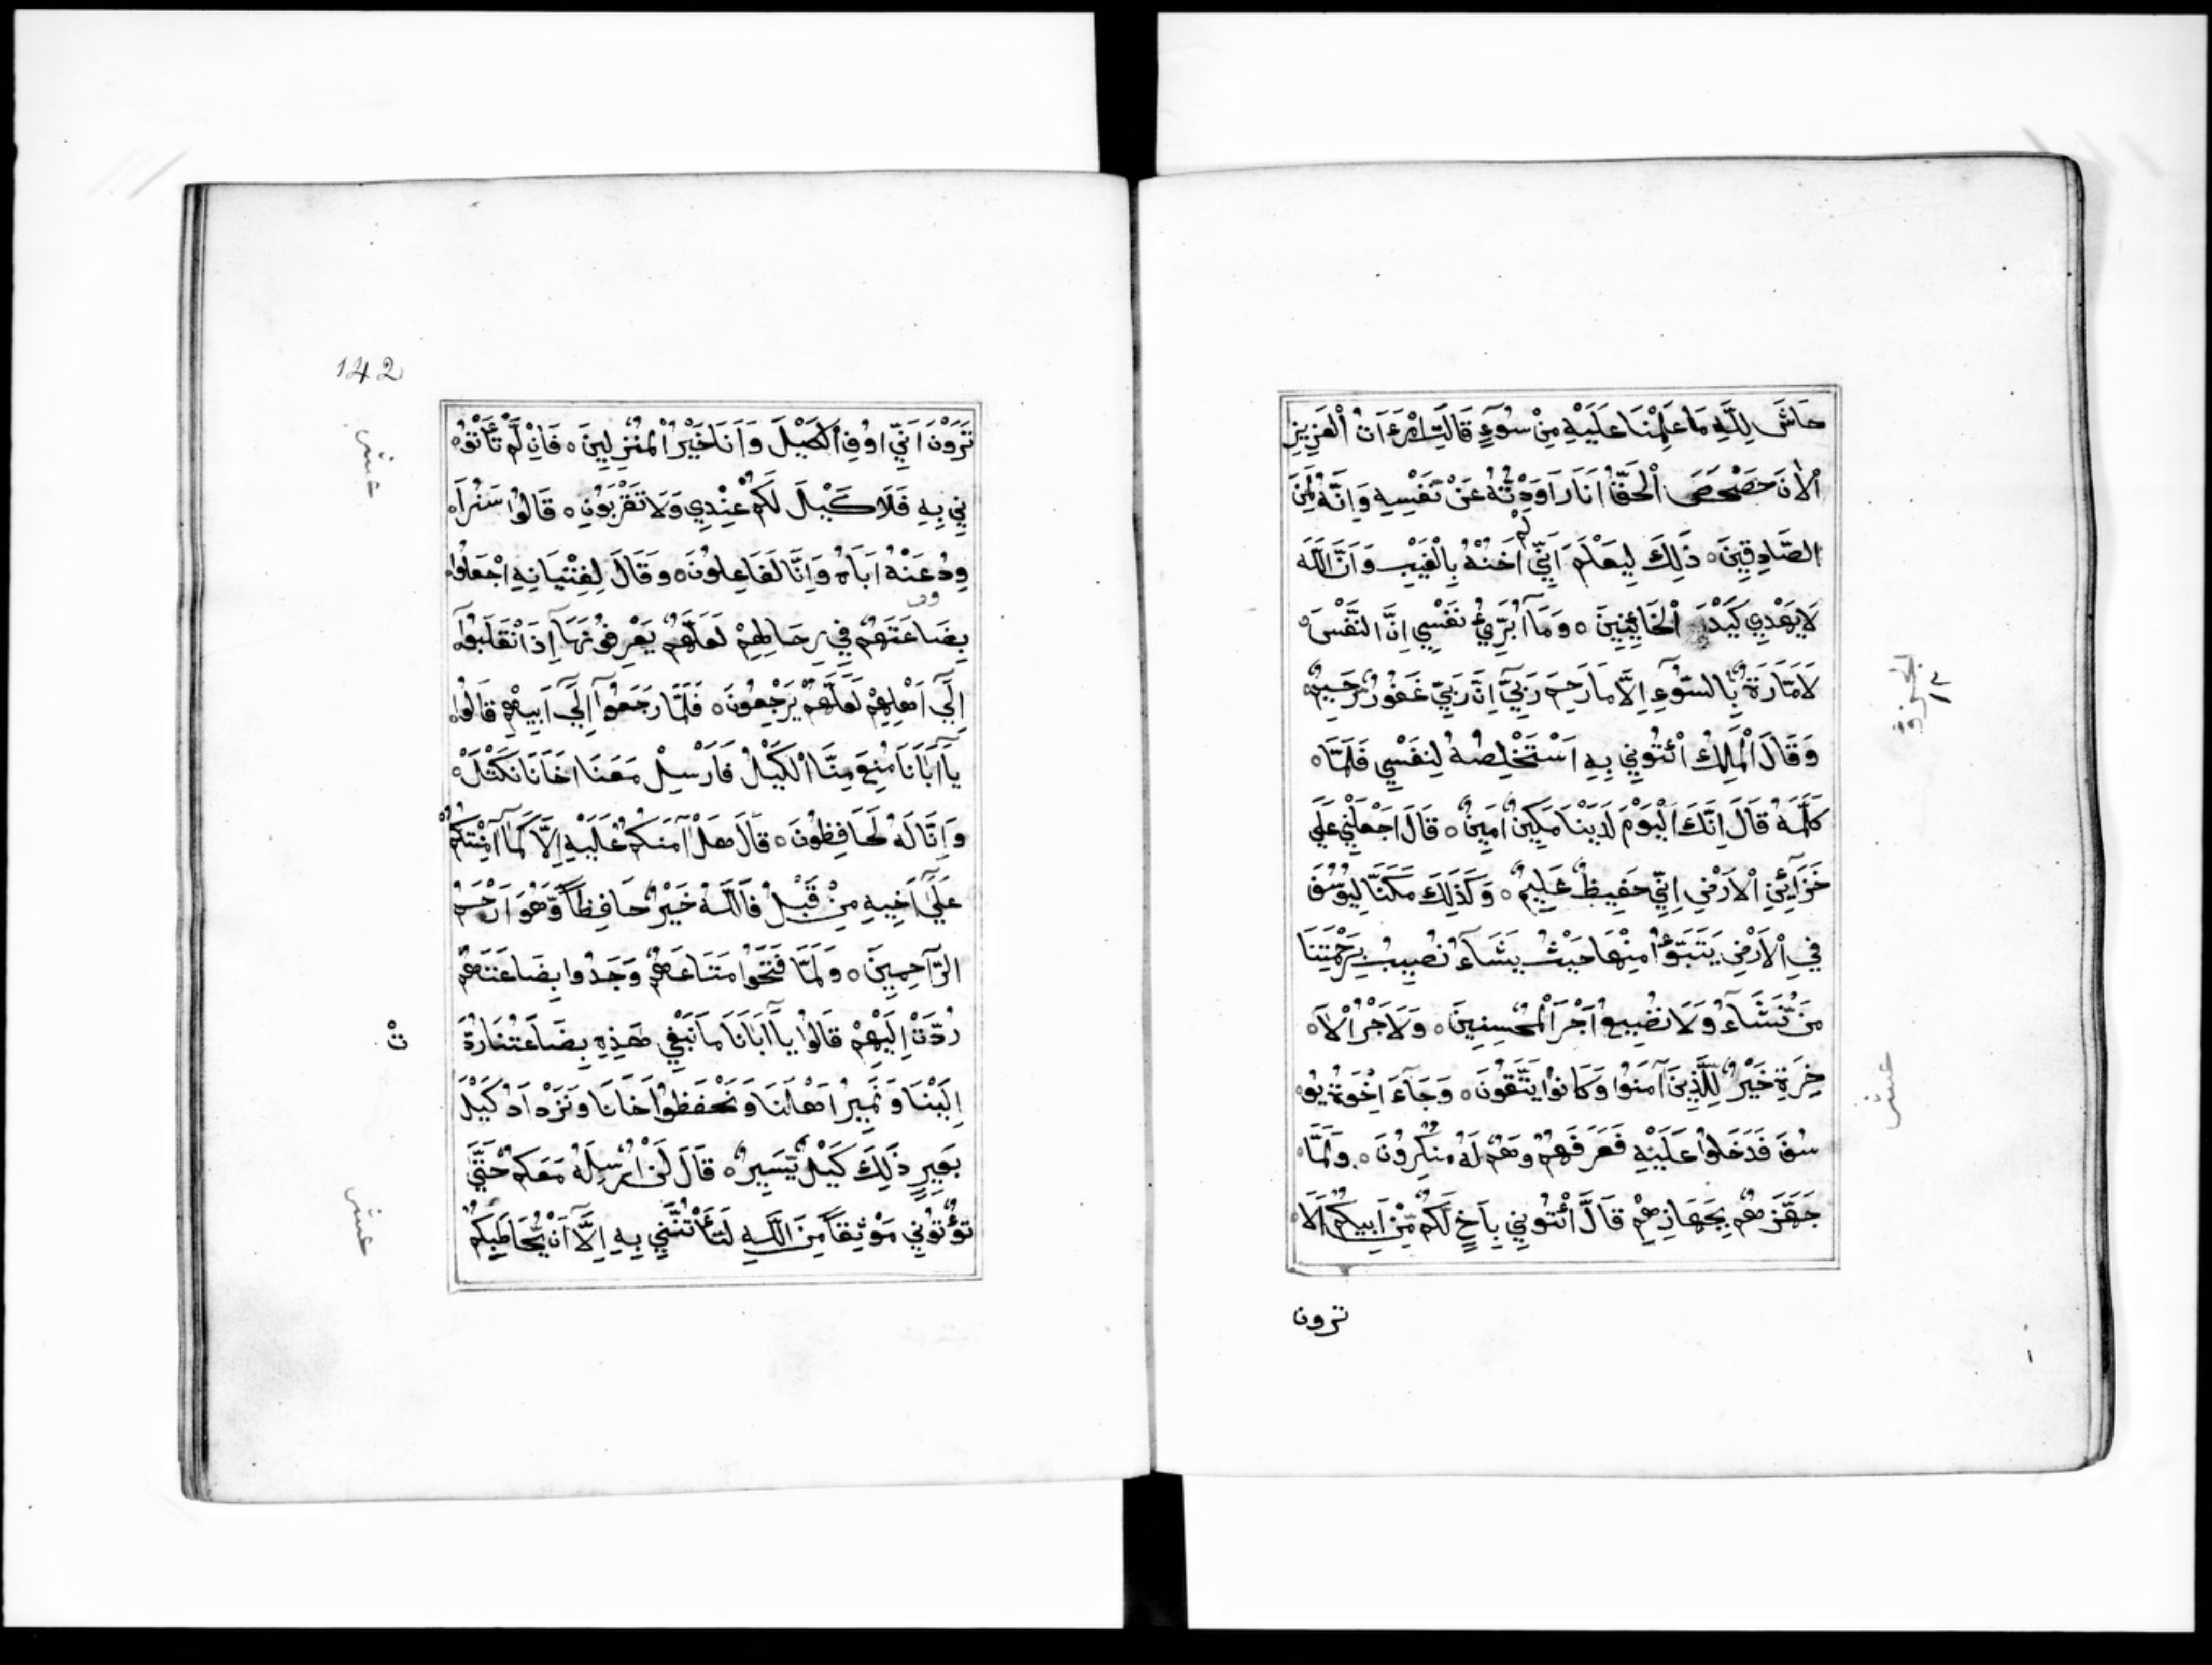 حَاشَ لِلَّهِ مَا عَلِمْنَا عَلَيْهِ مِنْ سُوٓءٍ قَالَتِ امْرَءَاتُ الْعَزِيزِ
الْاٰنَ حَصْحَصَ الْحَقُّ اَنَا رَاوَدْتُّهُ عَنْ نَفْسِهِ وَاِنَّهُ لَمِنَ
الصَّادِقِينَ ٥ ذَلِكَ لِيَعْلَمَ اَنِّي لَمْ اَخُنْهُ بِالْغَيْبِ وَاَنَّ اللَّهَ
لَا يَهْدِي كَيْدَ الْخَائِنِينَ ٥ وَمَآ اُبَرِّئُ نَفْسِي اِنَّ النَّفْسَ
لَاَمَّارَةٌ بِالسُّوٓءِ اِلَّا مَا رَحِمَ رَبِّيٓ اِنَّ رَبِّي غَفُورٌ رَّحِيمٌ
وَقَالَ الْمَلِكُ ائْتُونِي بِهِ اَسْتَخْلِصْهُ لِنَفْسِي فَلَمَّا ٥
كَلَّمَهُ قَالَ اِنَّكَ الْيَوْمَ لَدَيْنَا مَكِينٌ اَمِينٌ ٥ قَالَ اجْعَلْنِي عَلَى
خَزَآئِنِ الْاَرْضِ اِنِّي حَفِيظٌ عَلِيمٌ ٥ وَكَذَلِكَ مَكَّنَّا لِيُوسُفَ
فِي الْاَرْضِ يَتَبَوَّؤُا مِنْهَا حَيْثُ يَشَآءُ نُصِيبُ بِرَحْمَتِنَا
مَنْ نَّشَآءُ وَلَا نُضِيعُ اَجْرَ الْمُحْسِنِينَ ٥ وَلَاَجْرُ الْاٰ ٥
خِرَةِ خَيْرٌ لِلَّذِينَ آمَنُوا وَكَانُوا يَتَّقُونَ ٥ وَجَآءَ اِخْوَةُ يُو ٥
سُفَ فَدَخَلُوا عَلَيْهِ فَعَرَفَهُمْ وَهُمْ لَهُ مُنْكِرُونَ ٥ وَلَمَّا ٥
جَهَّزَهُمْ بِجَهَازِهِمْ قَالَ ائْتُونِي بِاَخٍ لَكُمْ مِّنْ اَبِيكُمْ اَلَا ٥
ترون
الجزو
١٣
عشر
142
تَرَوْنَ اَنِّي اُوفِي الْكَيْلَ وَاَنَا خَيْرُ الْمُنْزِلِينَ ٥ فَاِنْ لَّمْ تَأْتُو ٥
نِي بِهِ فَلَا كَيْلَ لَكُمْ عِنْدِي وَلَا تَقْرَبُونِ ٥ قَالُوا سَنُرَا ٥
وِدُ عَنْهُ اَبَاهُ وَاِنَّا لَفَاعِلُونَ ٥ وَقَالَ لِفِتْيَانِهِ اجْعَلُوا
بِضَاعَتَهُمْ فِي رِحَالِهِمْ لَعَلَّهُمْ يَعْرِفُونَهَآ اِذَا انْقَلَبُوٓا
اِلَى اَهْلِهِمْ لَعَلَّهُمْ يَرْجِعُونَ ٥ فَلَمَّا رَجَعُوٓا اِلَى اَبِيهِمْ قَالُوا
يَآ اَبَانَا مُنِعَ مِنَّا الْكَيْلُ فَاَرْسِلْ مَعَنَا اَخَانَا نَكْتَلْ ٥
وَاِنَّا لَهُ لَحَافِظُونَ ٥ قَالَ هَلْ آمَنُكُمْ عَلَيْهِ اِلَّا كَمَآ اَمِنْتُكُمْ
عَلَى اَخِيهِ مِنْ قَبْلُ فَاللَّهُ خَيْرٌ حَافِظًا وَّهُوَ اَرْحَمُ
الرَّاحِمِينَ ٥ وَلَمَّا فَتَحُوا مَتَاعَهُمْ وَجَدُوا بِضَاعَتَهُمْ
رُدَّتْ اِلَيْهِمْ قَالُوا يَآ اَبَانَا مَا نَبْغِي هَذِهِ بِضَاعَتُنَا رُدَّ
اِلَيْنَا وَنَمِيرُ اَهْلَنَا وَنَحْفَظُ اَخَانَا وَنَزْدَادُ كَيْلَ
بَعِيرٍ ذَلِكَ كَيْلٌ يَّسِيرٌ ٥ قَالَ لَنْ اُرْسِلَهُ مَعَكُمْ حَتَّى
تُؤْتُونِي مَوْثِقًا مِنَ اللَّهِ لَتَأْتُنَّنِي بِهِ اِلَّآ اَنْ يُّحَاطَ بِكُمْ
عشر
تْ
عشر